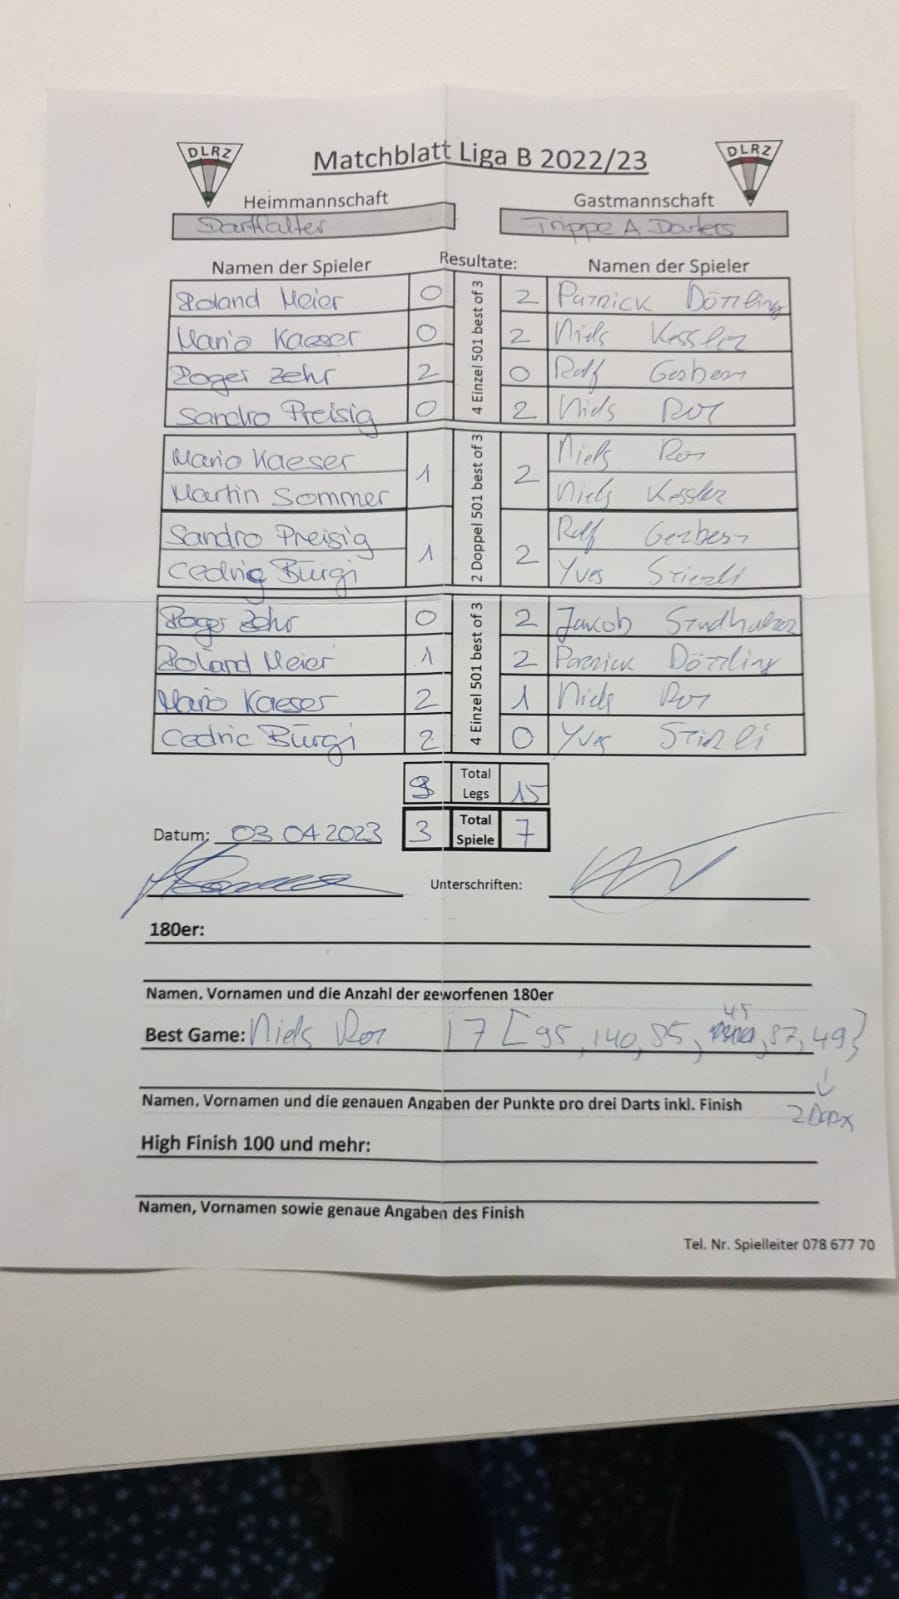 DLRZ Matchblatt Liga B 2022/23 DLRZ
Heimmannschaft Gastmannschaft
Dartfalter Trippe A Darters
Namen der Spieler Resultate: Namen der Spieler
4 Einzel 501 best of 3
Roland Meier 0 2 Patrick Döttling
Mario Kaeser 0 2 Niels Kessler
Roger Zehr 2 0 Rolf Gerber
Sandro Preisig 0 2 Niels Rot
2 Doppel 501 best of 3
Mario Kaeser 1 2 Niels Rot
Martin Sommer Niels Kessler
Sandro Preisig 1 2 Rolf Gerber
Cedric Bürgi Yves
4 Einzel 501 best of 3
Roger Zehr 0 2 Jakob
Roland Meier 1 2 Patrick Döttling
Mario Kaeser 2 1 Niels Rot
Cedric Bürgi 2 0 Yves
Total Legs 15
Datum: 03.04.2023 3 Total Spiele 7
Unterschriften:
180er:
Namen, Vornamen und die Anzahl der geworfenen 180er
Best Game: Niels Rot 17 [95, 140, 85, 45, 87, 49]
Namen, Vornamen und die genauen Angaben der Punkte pro drei Darts inkl. Finish
2 Darts
High Finish 100 und mehr:
Namen, Vornamen sowie genaue Angaben des Finish
Tel. Nr. Spielleiter 078 677 70